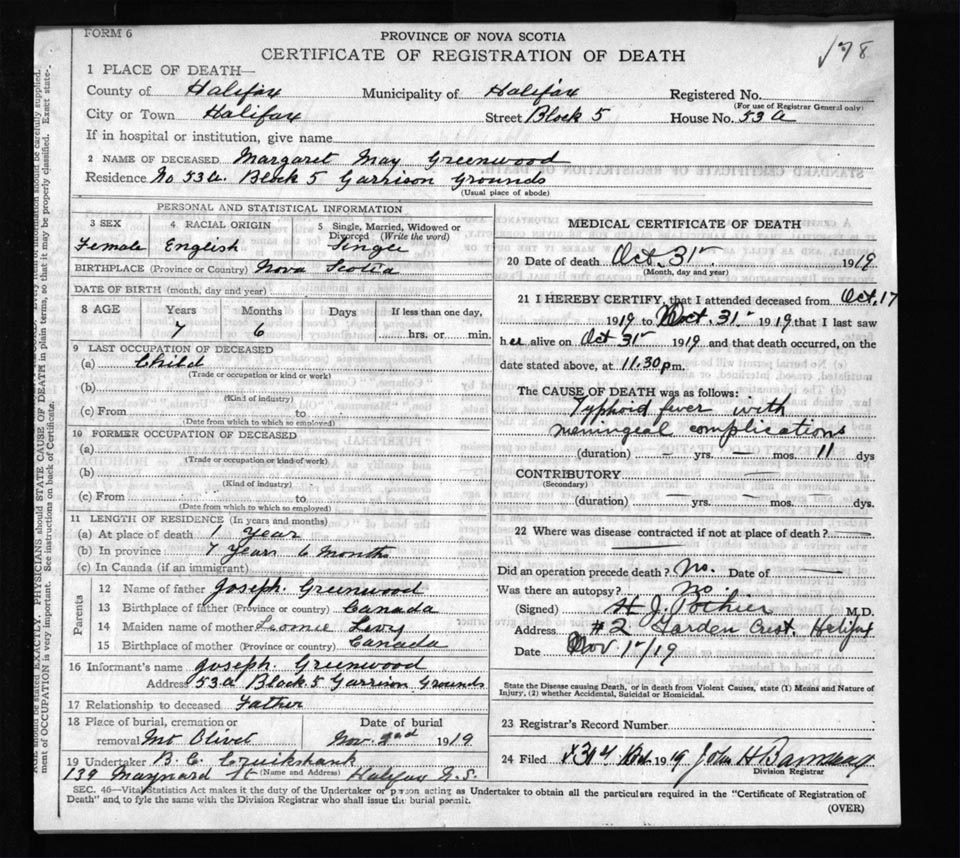 FORM 6
PROVINCE OF NOVA SCOTIA
CERTIFICATE OF REGISTRATION OF DEATH
178
1 PLACE OF DEATH—
County of Halifax Municipality of Halifax Registered No.
(For use of Registrar General only)
City or Town Halifax Street Block 5 House No. 53 A
If in hospital or institution, give name
2 NAME OF DECEASED Margaret May Greenwood
Residence No 53a. Block 5 Garrison Grounds
(Usual place of abode)
PERSONAL AND STATISTICAL INFORMATION
3 SEX 4 RACIAL ORIGIN 5 Single, Married, Widowed or Divorced (Write the word)
Female English Single
BIRTHPLACE (Province or Country) Nova Scotia
DATE OF BIRTH (month, day and year)
8 AGE Years Months Days If less than one day,
7 6 hrs. or min.
9 LAST OCCUPATION OF DECEASED
(a) Child
(Trade or occupation or kind or work)
(b)
(Kind of industry)
(c) From to
(Date from which to which so employed)
10 FORMER OCCUPATION OF DECEASED
(a)
(Trade or occupation or kind of work)
(b)
(Kind of industry)
(c) From to
(Date from which to which so employed)
11 LENGTH OF RESIDENCE (In years and months)
(a) At place of death 1 year
(b) In province 7 years 6 months
(c) In Canada (if an immigrant)
Parents
12 Name of father Joseph Greenwood
13 Birthplace of father (Province or country) Canada
14 Maiden name of mother Levy
15 Birthplace of mother (Province or country) Canada
16 Informant's name Joseph Greenwood
Address 53 a Block 5 Garrison Grounds
17 Relationship to deceased Father
18 Place of burial, cremation or removal Mt Olivet Date of burial Nov. 2nd 1919
19 Undertaker B. C. Cruikshank
139 Maynard St (Name and Address) Halifax N.S.
MEDICAL CERTIFICATE OF DEATH
20 Date of death Oct. 31st 1919
(Month, day and year)
21 I HEREBY CERTIFY, that I attended deceased from Oct. 17
1919 to Oct. 31st 1919 that I last saw
her alive on Oct 31st 1919 and that death occurred, on the
date stated above, at 11.30 p m.
The CAUSE OF DEATH was as follows:
Typhoid fever with
meningeal complications
(duration) — yrs. — mos. 11 dys
CONTRIBUTORY —
(Secondary)
(duration) — yrs. — mos. dys.
22 Where was disease contracted if not at place of death? —
Did an operation precede death? No. Date of —
Was there an autopsy? No
(Signed) H J. Pothier M.D.
Address #2 Garden Crest. Halifax
Date Nov 1st/19
State the Disease causing Death, or in death from Violent Causes, state (1) Means and Nature of
Injury, (2) whether Accidental, Suicidal or Homicidal.
23 Registrar's Record Number
24 Filed 1919 John H
Division Registrar
SEC. 46—Vital Statistics Act makes it the duty of the Undertaker or person acting as Undertaker to obtain all the particulars required in the "Certificate of Registration of
Death" and to fyle the same with the Division Registrar who shall issue the burial permit.
(OVER)